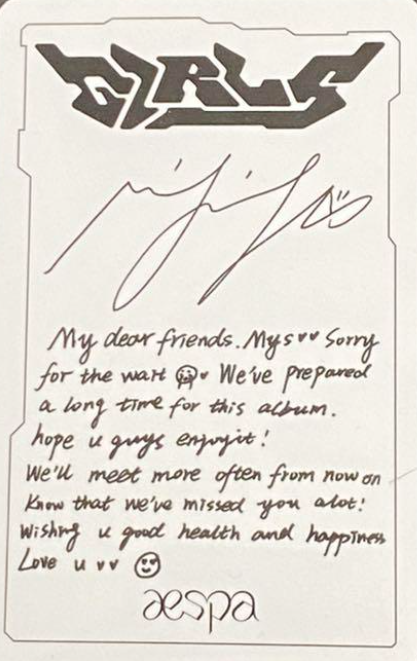 GIRLS
My dear friends. Mys♥♥ Sorry
for the wait 🥺♥ We've prepared
a long time for this album.
hope u guys enjoyit!
We'll meet more often from now on
Know that we've missed you alot!
Wishing u good health and happiness
Love u ♥♥ 😍
aespa